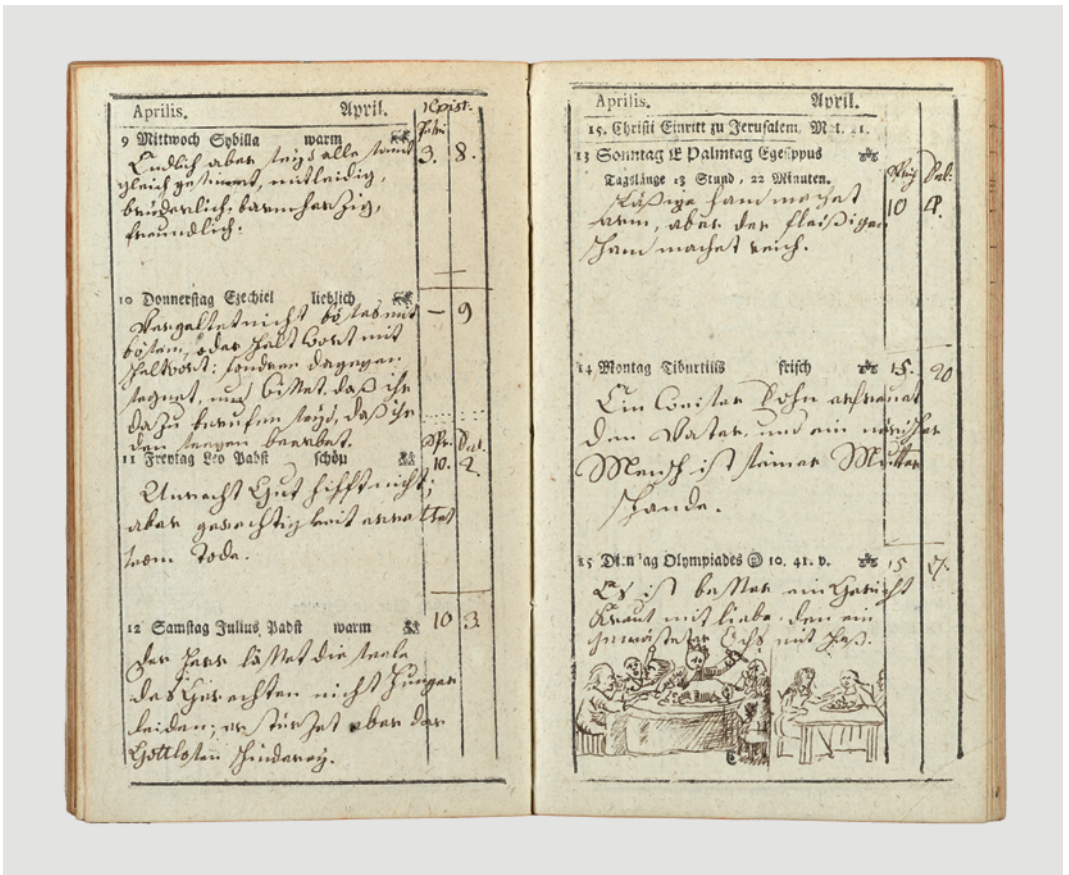 Aprilis. April. Epist.
Petri
9 Mittwoch Sybilla warm 3. 8.
Endlich aber seyd alle samt
gleich gesinnet, mitleidig,
brüderlich, barmherzig,
freundlich.
10 Donnerstag Ezechiel lieblich
Vergeltet nicht böses mit — 9
bösem, oder Scheltwort mit
Scheltwort: sondern dagegen
segnet, und wisset, daß ihr
dazu berufen seyd, daß ihr
den seegen beerbet. Spr. Sal.
11 Freytag Leo Pabst schön 10. 2.
Unrecht Gut hilfft nicht;
aber gerechtigkeit errettet
vom Tode.
12 Samstag Julius Pabst warm 10 3.
Der Herr lässet die seele
des Gerechten nicht Hunger
leiden; er stürzet aber der
Gottlosen schinderey.
Aprilis. April.
15. Christi Einritt zu Jerusalem, Mat. 21.
13 Sonntag E Palmtag Egesippus
Tagslänge 13 Stund, 22 Minuten. Spr. Sal.
Läßige hand machet 10 4.
arm, aber der fleißigen
Hand machet reich.
14 Montag Tiburtius frisch 15. 20
Ein weiser Sohn erfreuet
den Vater, und ein närischer
Mensch ist seiner Mutter
schande.
15 Dienstag Olympiades 10. 41. v. 15 17.
Es ist besser ein Gericht
Kraut mit liebe, den ein
gemästeter Ochs mit Haß.